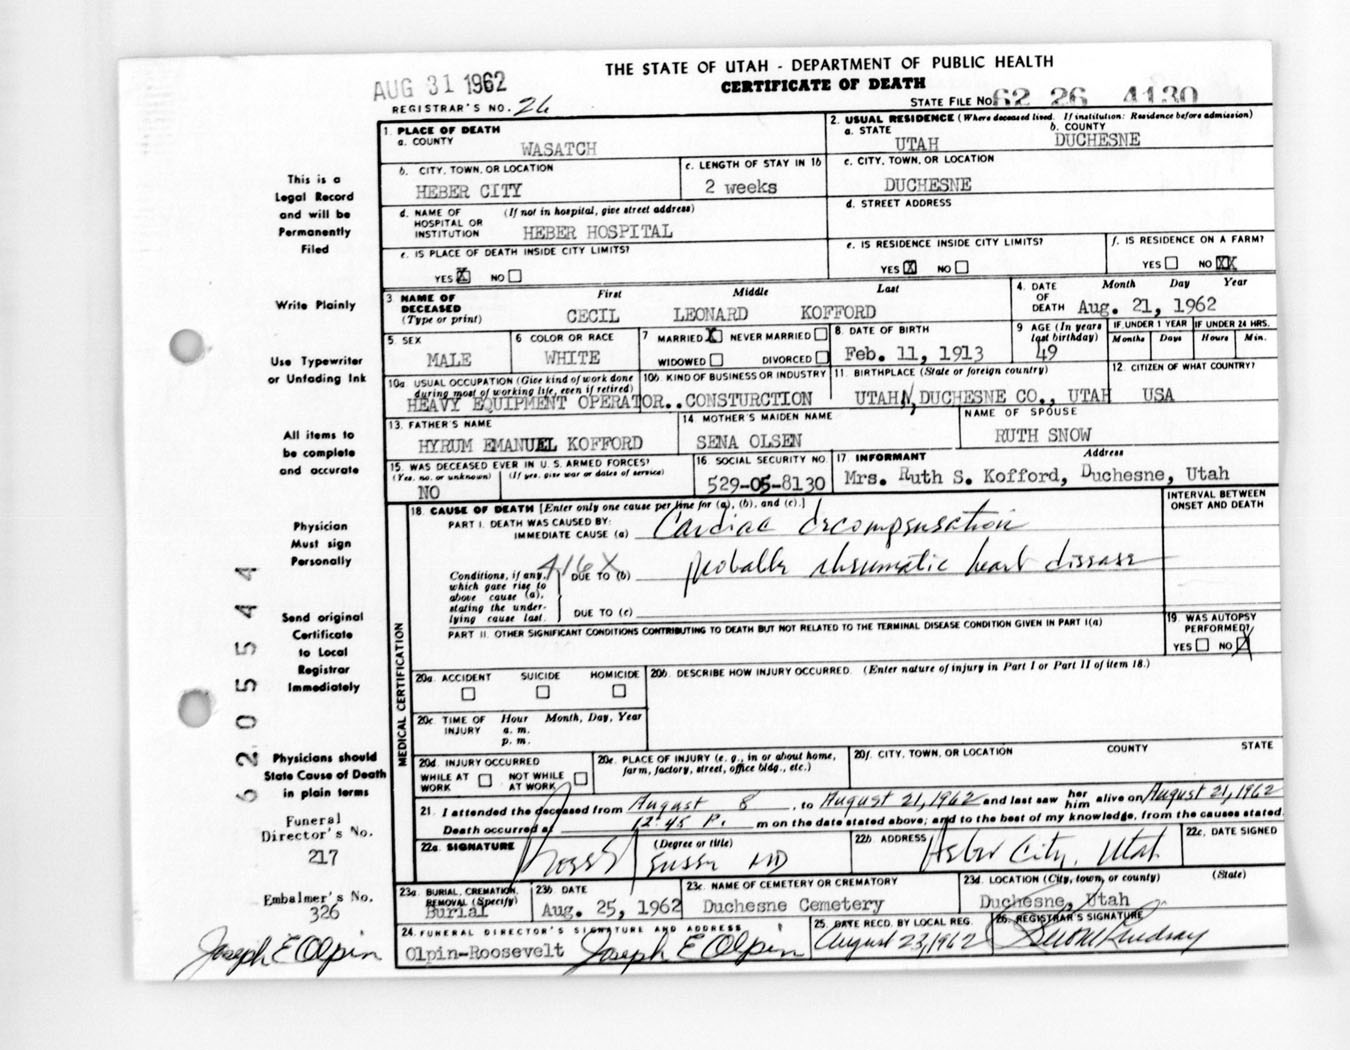 THE STATE OF UTAH - DEPARTMENT OF PUBLIC HEALTH
CERTIFICATE OF DEATH
AUG 31 1962
REGISTRAR'S NO. 26
STATE FILE NO. 62 26 4130
1. PLACE OF DEATH
a. COUNTY
WASATCH
2. USUAL RESIDENCE (Where deceased lived. If institution: Residence before admission)
a. STATE
UTAH
b. COUNTY
DUCHESNE
b. CITY, TOWN, OR LOCATION
HEBER CITY
c. LENGTH OF STAY IN 1b
2 weeks
c. CITY, TOWN, OR LOCATION
DUCHESNE
d. NAME OF HOSPITAL OR INSTITUTION
(If not in hospital, give street address)
HEBER HOSPITAL
d. STREET ADDRESS
e. IS PLACE OF DEATH INSIDE CITY LIMITS?
YES X NO
e. IS RESIDENCE INSIDE CITY LIMITS?
YES X NO
f. IS RESIDENCE ON A FARM?
YES NO XX
3 NAME OF DECEASED (Type or print)
First Middle Last
CECIL LEONARD KOFFORD
4. DATE OF DEATH
Month Day Year
Aug. 21, 1962
5. SEX
MALE
6 COLOR OR RACE
WHITE
7 MARRIED X NEVER MARRIED
WIDOWED DIVORCED
8. DATE OF BIRTH
Feb. 11, 1913
9 AGE (In years last birthday)
49
IF UNDER 1 YEAR
Months Days
IF UNDER 24 HRS.
Hours Min.
10a USUAL OCCUPATION (Give kind of work done during most of working life, even if retired)
HEAVY EQUIPMENT OPERATOR..
10b. KIND OF BUSINESS OR INDUSTRY
CONSTURCTION
11. BIRTHPLACE (State or foreign country)
UTAH, DUCHESNE CO., UTAH
12. CITIZEN OF WHAT COUNTRY?
USA
13. FATHER'S NAME
HYRUM EMANUEL KOFFORD
14. MOTHER'S MAIDEN NAME
SENA OLSEN
NAME OF SPOUSE
RUTH SNOW
15. WAS DECEASED EVER IN U. S. ARMED FORCES?
(Yes, no, or unknown) (If yes, give war or dates of service)
NO
16. SOCIAL SECURITY NO.
529-05-8130
17. INFORMANT Address
Mrs. Ruth S. Kofford, Duchesne, Utah
18. CAUSE OF DEATH [Enter only one cause per line for (a), (b), and (c).]
PART I. DEATH WAS CAUSED BY:
IMMEDIATE CAUSE (a) Cardiac decompensation
INTERVAL BETWEEN ONSET AND DEATH
416X
Conditions, if any, which gave rise to above cause (a), stating the underlying cause last.
DUE TO (b) probably rheumatic heart disease
DUE TO (c)
PART II. OTHER SIGNIFICANT CONDITIONS CONTRIBUTING TO DEATH BUT NOT RELATED TO THE TERMINAL DISEASE CONDITION GIVEN IN PART I(a)
19. WAS AUTOPSY PERFORMED?
YES NO X
MEDICAL CERTIFICATION
20a. ACCIDENT SUICIDE HOMICIDE
20b. DESCRIBE HOW INJURY OCCURRED. (Enter nature of injury in Part I or Part II of item 18.)
20c. TIME OF INJURY
Hour Month, Day, Year
a. m.
p. m.
20d. INJURY OCCURRED
WHILE AT WORK NOT WHILE AT WORK
20e. PLACE OF INJURY (e. g., in or about home, farm, factory, street, office bldg., etc.)
20f. CITY, TOWN, OR LOCATION COUNTY STATE
21. I attended the deceased from August 8, to August 21, 1962 and last saw her him alive on August 21, 1962
Death occurred at 12:45 P. m on the date stated above; and to the best of my knowledge, from the causes stated.
22a. SIGNATURE (Degree or title)
MD
22b. ADDRESS
Heber City, Utah
22c. DATE SIGNED
23a. BURIAL, CREMATION, REMOVAL (Specify)
Burial
23b. DATE
Aug. 25, 1962
23c. NAME OF CEMETERY OR CREMATORY
Duchesne Cemetery
23d. LOCATION (City, town, or county) (State)
Duchesne, Utah
24. FUNERAL DIRECTOR'S SIGNATURE AND ADDRESS
Olpin-Roosevelt Joseph E Olpin
25. DATE RECD. BY LOCAL REG.
August 23, 1962
26. REGISTRAR'S SIGNATURE
Lindsay
This is a
Legal Record
and will be
Permanently
Filed
Write Plainly
Use Typewriter
or Unfading Ink
All items to
be complete
and accurate
Physician
Must sign
Personally
Send original
Certificate
to Local
Registrar
Immediately
Physicians should
State Cause of Death
in plain terms
Funeral
Director's No.
217
Embalmer's No.
326
Joseph E Olpin
6205544